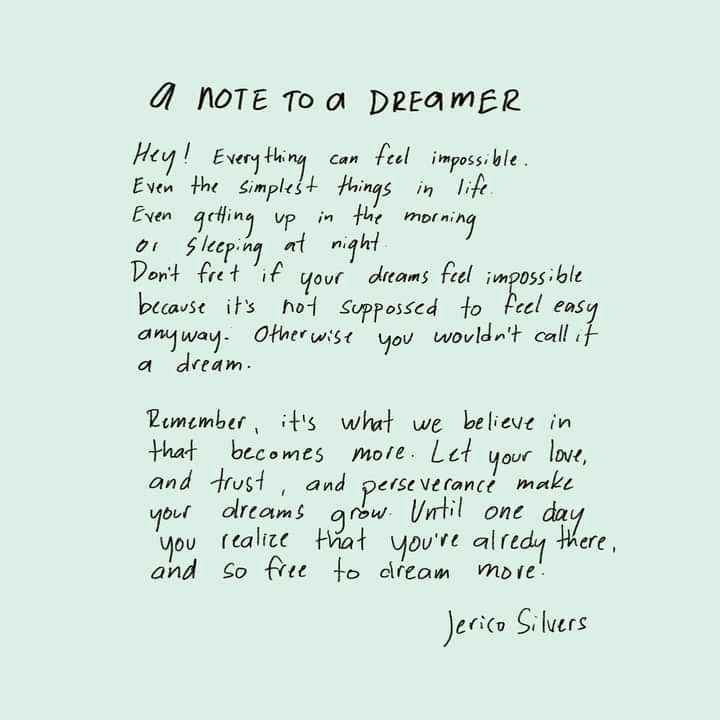 a NOTE TO a DREamER
Hey! Everything can feel impossible.
Even the simplest things in life.
Even getting up in the morning
or sleeping at night.
Don't fret if your dreams feel impossible
because it's not suppossed to feel easy
anyway. Otherwise you wouldn't call it
a dream.
Remember, it's what we believe in
that becomes more. Let your love,
and trust, and perseverance make
your dreams grow. Until one day
you realize that you're alredy there,
and so free to dream more.
Jerico Silvers